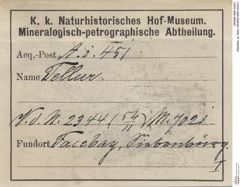 K. k. Naturhistorisches Hof-Museum.
Mineralogisch-petrographische Abtheilung.
Acq.-Post A. i. 451
Name Tellur.
V. d. N. 2344 (54/) M. 7021
Fundort Facebay, Siebenbürg.